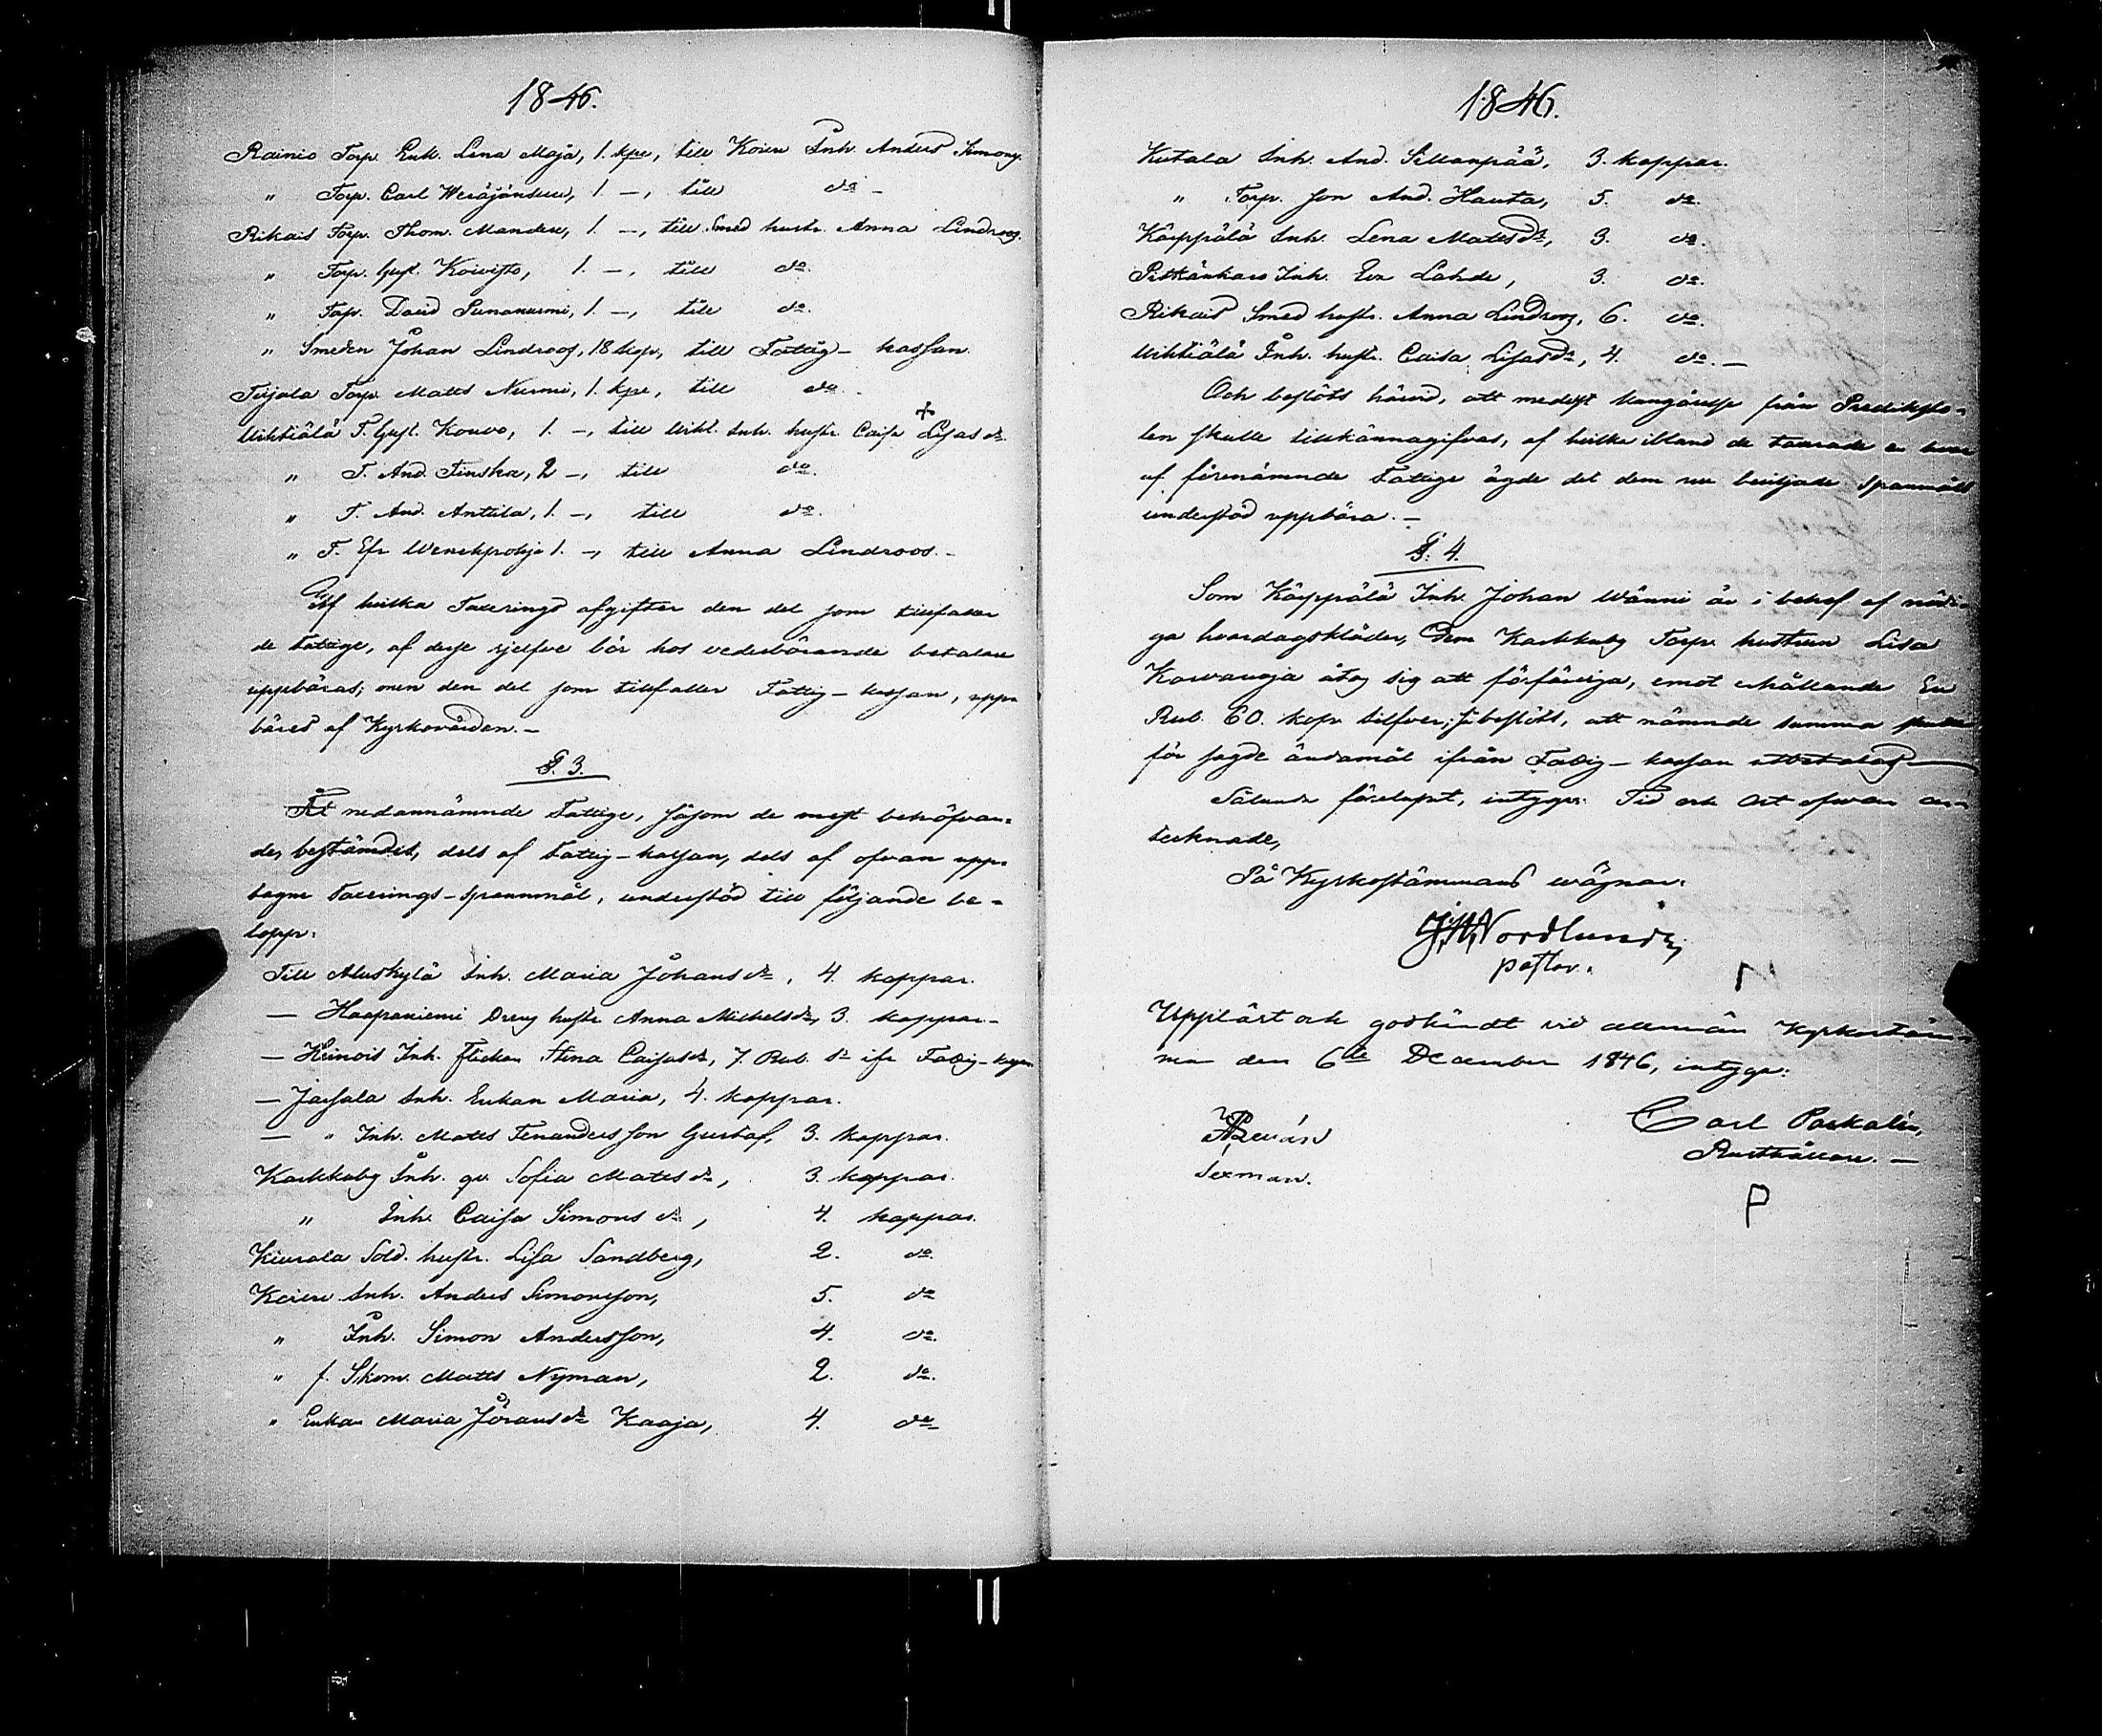 1846.
Rainio Torp. Enk. Lena Maja, 1. kpe, till Koieu Inh. Anders Simons.
" Torp. Carl Weräjänsuu, 1. —, till do —
Rikais Torp. Thom. Mandere, 1. —, till Smed hustr. Anna Lindroos.
" Torp. Gust. Koivisto, 1. —, till do.
" Torp. David Sunanurmi, 1. —, till do.
" Smeden Johan Lindroos, 18 kop, till Fattig-kassan.
Torp. Matts Nurmi, 1. kpe, till do.
Uihtiälä T. Gust. Kouvo, 1. —, till Uiht. Inh. hustr. Caisa Lisas dr.
" T. And. Finska, 2 —, till do.
" T. And. Anttila, 1. —, till do.
" T. Efr. 1. —, till Anna Lindroos. —
Af hvilka Taxerings afgifter den del som tillfaller
de Fattige, af desse sjelfve bör hos vederbörande betalare
uppbäras; men den del som tillfaller Fattig-kassan, upp-
bäres af Kyrkovärden. —
§. 3.
Åt nedannämnde Fattige, såsom de mest behöfvan-
de, bestämdes, dels af Fattig-kassan, dels af ofvan upp-
tagne Taxerings-spannmål, understöd till följande be-
lopp:
Till Aluskylä Inh. Maria Johans dr, 4. kappar.
— Haapaniemi Dreng hustr. Anna Michelsdr, 3. kappar. —
— Heinois Inh. Flickan Stina Caisasdr, 7. Rub. Sr ifr. Fattig-kassan
— Jaisala Inh. Enkan Maria, 4. kappar.
— " Inh. Matts Gustaf, 3. kappar.
Karkkuby Inh. qv. Sofia Matts dr, 3. kappar.
" Inh. Caisa Simons dr, 4. kappar.
Kiurala Sold. hustr. Lisa Sandberg, 2. do.
Inh. Anders Simonsson, 5. do
" Inh. Simon Andersson, 4. do.
" f. Skom. Matts Nyman, 2. do.
" Enkan Maria Jörans dr Kaaja, 4. do
1846.
Kutala Inh. And. Sillanpää, 3. kappar.
" Torp. Son And. Hauta, 5. do.
Käppälä Inh. Lena Mattsdr, 3. do.
Inh. Eva Lahde, 3. do.
Rikais Smed hustr. Anna Lindroos, 6. do.
Uihtiälä Inh. hustr. Caisa Lisasdr, 4. do. —
Och beslöts härvid, att medelst kungörelse från Prediksto-
len skulle tillkännagifvas, af hvilke ibland de taxerade en hvar
af förenämnde Fattige ägde det dem nu beviljade spannmåls
understöd uppbära. —
§. 4.
Som Käppälä Inh. Johan Wänni är i behof af nödi-
ga hvardagskläder, dem Karkkuby Torp. hustrun Lisa
åtog sig att förfärdiga, emot erhållande En
Rub. 60. kop. silfver; så beslöts, att nämnde summa skulle
för sagde ändamål ifrån Fattig-kassan utbetalas —
Sålunda förelupit, intygar Tid och Ort ofvan an-
tecknade,
På Kyrkostämmans wägnar.
J. H. Nordlund,
pastor.
Uppläst och godkändt vid allmän Kyrkostäm-
ma den 6te December 1846, intyga:
Carl Paskalin,
Rusthållare. —
Sexman.
P